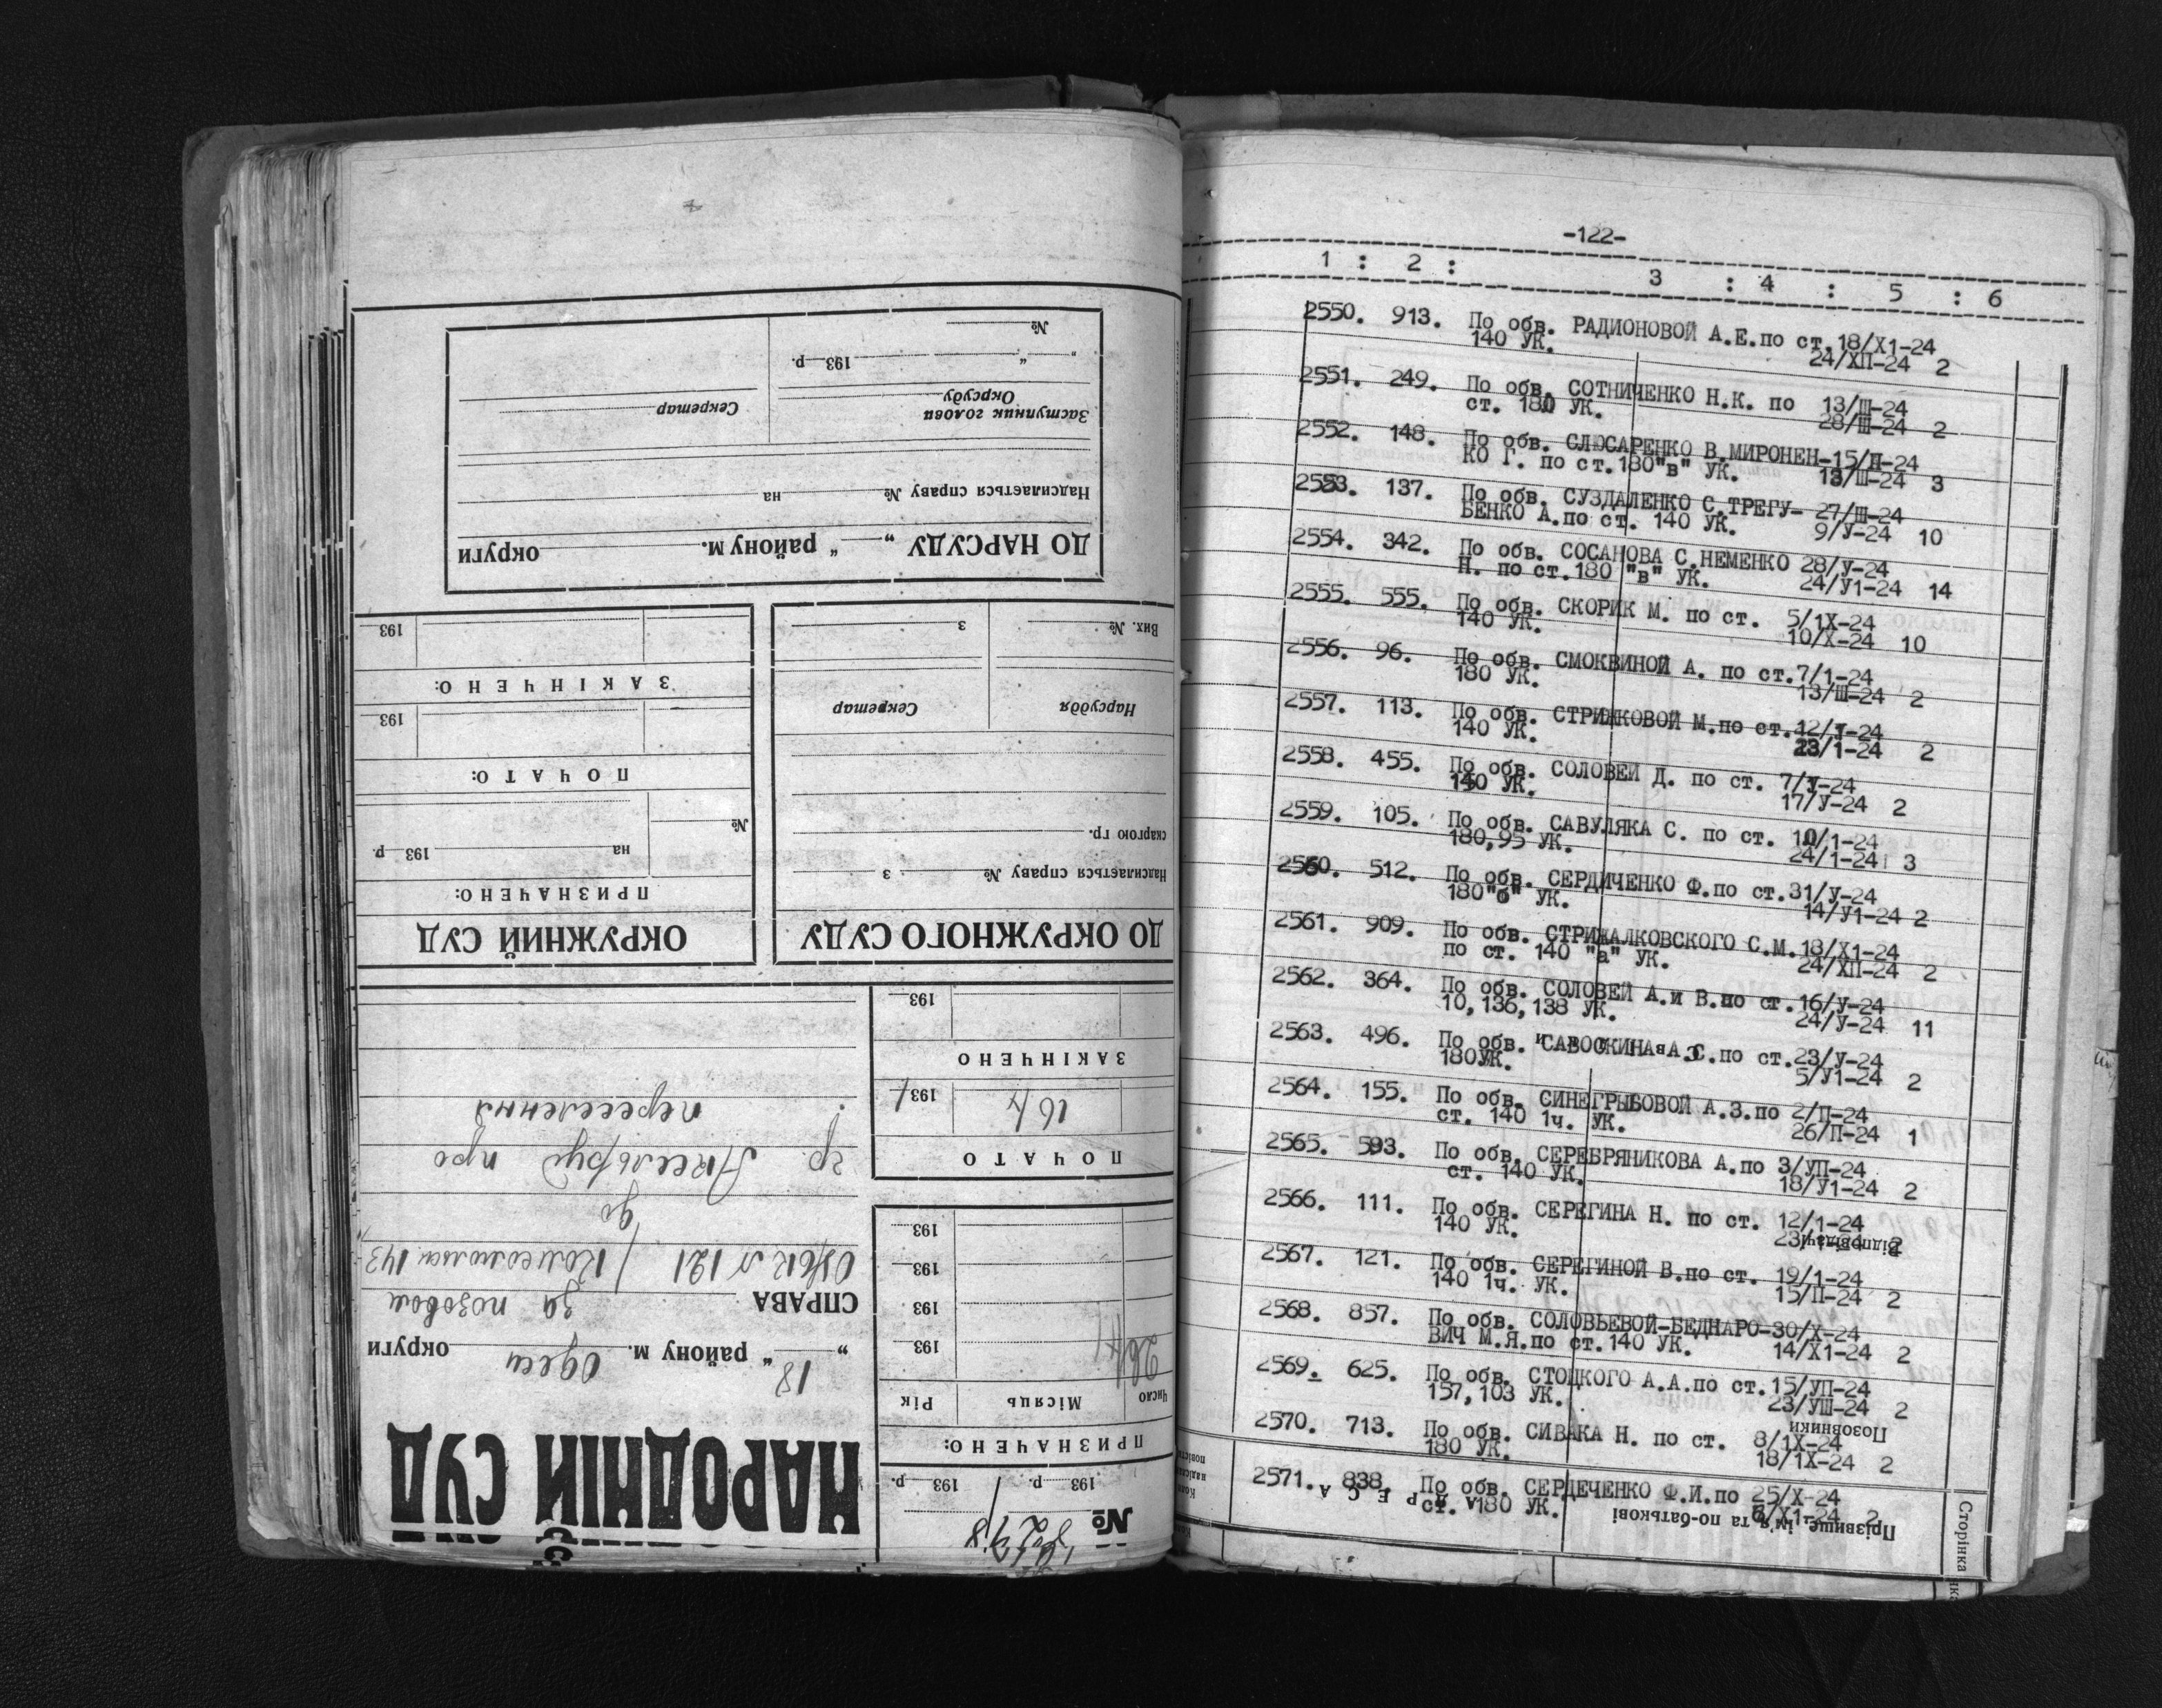 НАРОДНІЙ СУД
18 " району м. Одеси округи
СПРАВА за позовом
№ 121 / Комсомольск 143
до
гр. про
переселення
№
193 р. 193 р.
ПРИЗНАЧЕНО:
Число Місяць Рік
193
193
193
193
ПОЧАТО
16/4 1931
ЗАКІНЧЕНО
193
ДО ОКРУЖНОГО СУДУ
Надсилається справу № з
скаргою гр.
Нарсуддя Секретар
Вих. № з
ОКРУЖНИЙ СУД
ПРИЗНАЧЕНО:
на 193 р.
№
ПОЧАТО:
193
ЗАКІНЧЕНО:
193
ДО НАРСУДУ „ " району м. округи
Надсилається справу № на
Заступник голови
Окрсуду
Секретар
" " 193 р.
№
-122-
1 : 2 : 3 : 4 : 5 : 6
2550. 913. По обв. РАДИОНОВОЙ А.Е.по ст.18/Х1-24
140 УК. 24/ХП-24 2
2551. 249. По обв. СОТНИЧЕНКО Н.К. по 13/Ш-24
ст. 180 УК. 28/Ш-24 2
2552. 148. По обв. СЛЮСАРЕНКО В.МИРОНЕН-15/П-24
КО Г. по ст.180"в" УК. 13/Ш-24 3
2553. 137. По обв. СУЗДАЛЕНКО С.ТРЕГУ- 27/Ш-24
БЕНКО А.по ст. 140 УК. 9/У-24 10
2554. 342. По обв. СОСАНОВА С.НЕМЕНКО 28/У-24
Н. по ст.180 "в" УК. 24/У1-24 14
2555. 555. По обв. СКОРИК М. по ст. 5/1Х-24
140 УК. 10/Х-24 10
2556. 96. По обв. СМОКВИНОЙ А. по ст.7/1-24
180 УК. 13/Ш-24 2
2557. 113. По обв. СТРИЖКОВОЙ М.по ст.12/1-24
140 УК. 23/1-24 2
2558. 455. По обв. СОЛОВЕЙ Д. по ст. 7/У-24
140 УК. 17/У-24 2
2559. 105. По обв. САВУЛЯКА С. по ст. 10/1-24
180,95 УК. 24/1-24 3
2560. 512. По обв. СЕРДИЧЕНКО Ф.по ст.31/У-24
180"б" УК. 14/У1-24 2
2561. 909. По обв. СТРИЖАЛКОВСКОГО С.М.18/Х1-24
по ст. 140 "а" УК. 24/ХП-24 2
2562. 364. По обв. СОЛОВЕЙ А.и В.по ст.16/У-24
10,136,138 УК. 24/У-24 11
2563. 496. По обв. С.по ст.23/У-24
180УК. 5/У1-24 2
2564. 155. По обв. СИНЕГРЫБОВОЙ А.З.по 2/П-24
ст. 140 1ч. УК. 26/П-24 1
2565. 593. По обв. СЕРЕБРЯНИКОВА А.по 3/УП-24
ст. 140 УК. 18/У1-24 2
2566. 111. По обв. СЕРЕГИНА Н. по ст. 12/1-24
140 УК. 2
Відповідачі
2567. 121. По обв. СЕРЕГИНОЙ В.по ст. 19/1-24
140 1ч. УК. 15/П-24 2
2568. 857. По обв. СОЛОВЬЕВОЙ-БЕДНАРО-30/Х-24
ВИЧ М.Я.по ст.140 УК. 14/Х1-24 2
2569. 625. По обв. СТОЦКОГО А.А.по ст.15/УП-24
157,103 УК. 23/УШ-24 2
Позовники
2570. 713. По обв. СИВАКА Н. по ст. 8/1Х-24
180 УК. 18/1Х-24 2
2571. 838. По обв. СЕРДЕЧЕНКО Ф.И.по 25/Х-24
ст. 180 УК. /Х1-24 2
АДРЕСА
Прізвище, ім'я та по-батькові
Сторінка